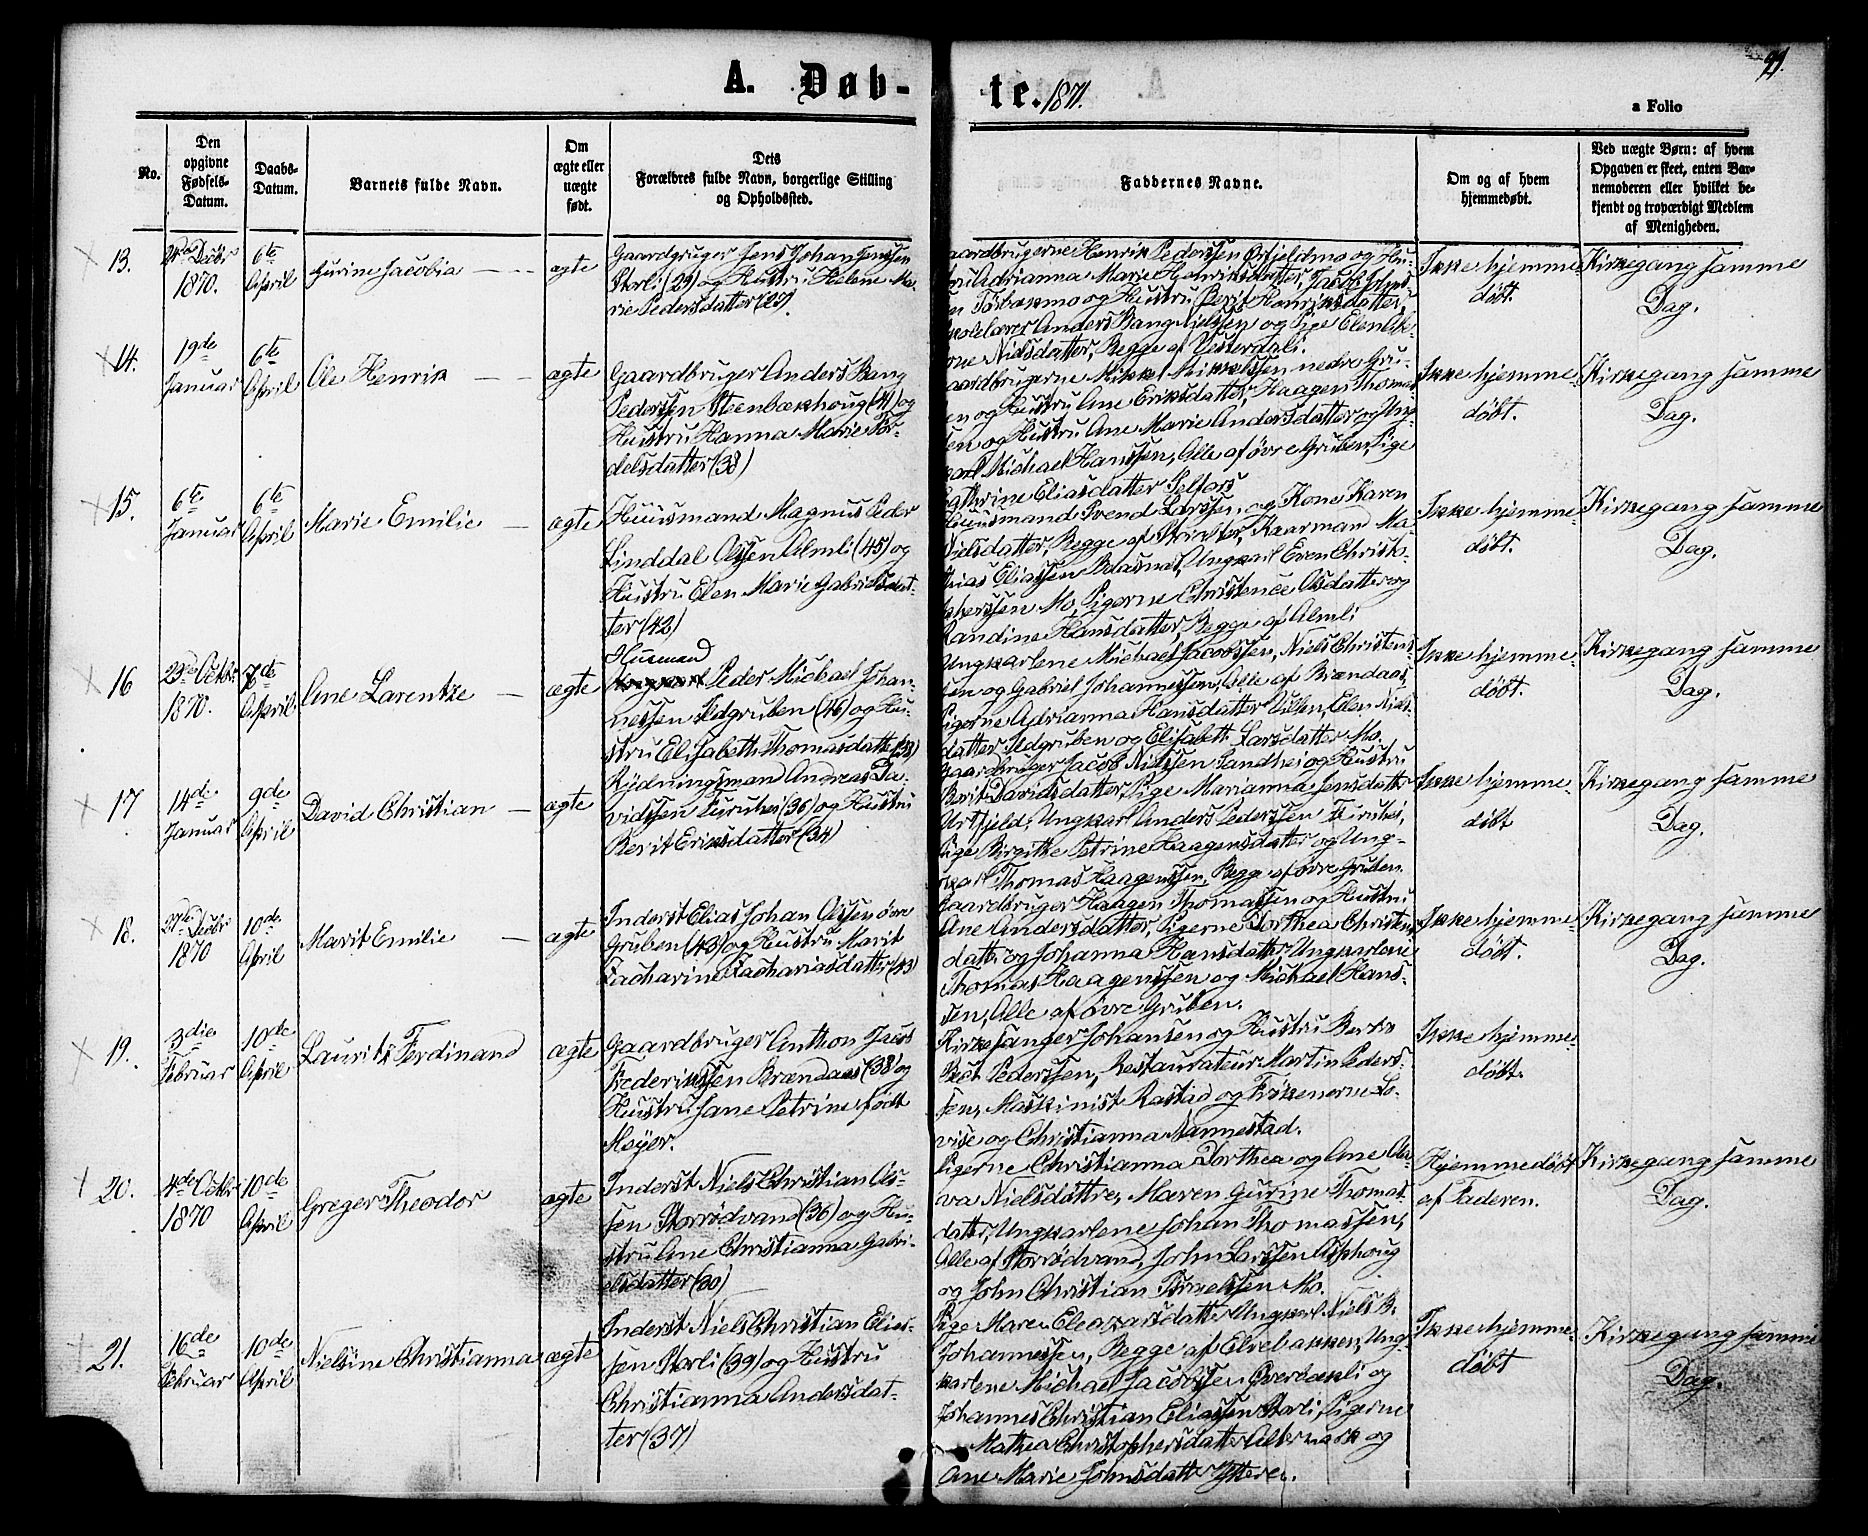 A. Døb-
te. 1871.
99.
a Folio
No.
Den opgivne Fødsels-Datum.
Daabs-Datum.
Barnets fulde Navn.
Om ægte eller uægte født.
Dets Forældres fulde Navn, borgerlige Stilling og Opholdssted.
Faddernes Navne.
Om og af hvem hjemmedøbt.
Ved uægte Børn: af hvem Opgaven er skeet, enten Barnemoderen eller hvilket bekjendt og troværdigt Medlem af Menigheden.
13.
Decbr 1870.
6te April
Gurine Jacobia
ægte
Gaardgruger Jens Johan Jenssen
Storli (29) og Hustru Helene Ma-
rie Pedersdatter
aardbrugerne Henrik Pederssen Ørfjeldmo og Hu-
Adrianna Marie Henriksdatter, Jacob Johns-
og Hustru Berit Henriksdatter,
Anders Bang Nielssen og Pige Elen
Nielsdatter, Begge af Vesterdali.
Ikke hjemme-
døbt.
Kirkegang samme
Dag.
14.
19de Januar
6te April
Ole Henrik
ægte
Gaardbruger Anders Bang
Pederssen Steenbækhoug (41) og
Hustru Hanna Marie Tor-
delsdatter (38)
aardbrugerne Mikkel Mikkelssen nedre Gru-
en og Hustru Ane Eriksdatter, Haagen Thomas-
sen og Hustru Ane Marie Andersdatter og Ung-
karl Michael Hanssen, Alle af øvre Gruben, Pige
Cathrine Eliasdatter Selfors
Ikke hjemme-
døbt.
Kirkegang samme
Dag.
15.
6te Januar
6te April
Marie Emilie
ægte
Huusmand Magnus Peder
Linddal Olssen Almli (45) og
Hustru Elen Marie Gabrielsdat-
ter (42)
Huusmand Svend Larssen og Kone Karen
Nielsdatter, Begge af Kaarmand Ma-
thias Eliassen Baasmo, Ungkarl Even Christo-
pherssen Mo, Pigerne Christence Olsdatter og
Randine Hansdatter, Begge af Almli
Ikke hjemme-
døbt.
Kirkegang samme
Dag.
16
23de Octbr. 1870.
7de April.
Ane Larentze
ægte
Husmand
Peder Michael Johan-
nessen Ildgruben (46) og Hu-
stru Elisabeth Thomasdatter
Ungkarlene Michael Jacobssen, Niels Christens-
sen og Gabriel Johannessen, Alle af Brændaas,
Pigerne Adrianna Hansdatter Villen, Elen Niels-
datter Ildgruben og Elisabeth Larsdatter Mo.
Ikke hjemme-
døbt.
Kirkegang samme
Dag.
17
14de Januar
9de April
David Christian
ægte
Rydningsmand Andreas Da-
vidssen Furuhei (36) og Hustru
Berit Eriksdatter (34)
Gaardbruger Jacob Nielssen Sandhei og Hustru
Berit Davidsdatter, Pige Marianna Jensdatter
Urtfjeld, Ungkarl Anders Pederssen Furuhei,
Pige Birgithe Petrine Haagensdatter og Ung-
karl Thomas Haagenssen, Begge af øvre Gruben.
Ikke hjemme-
døbt
Kirkegang samme
Dag.
18.
27de Decbr 1870
10de April
Marit Emilie
ægte
Inderst Elias Johan Olssen øvre
Gruben (43) og Hustru Marit
Zacharine Zachariasdatter (43)
Gaardbruger Haagen Thomassen og Hustru
Ane Andersdatter, Pigerne Dorthea Christens-
datter og Johanna Hansdatter, Ungkarlene
Thomas Haagenssen og Michael Hans-
sen, Alle af øvre Gruben.
Ikke hjemme-
døbt.
Kirkegang samme
Dag.
19.
3die Februar
10de April
Laurits Ferdinand
ægte
Gaardbruger Anthon Jacob
Frederikssen Brændaas (38) og
Hustru Jane Petrine født
Meyer.
Kirkesanger Johansen og Hustru Berthe
Pederssen, Restaurateur Martin Peders-
sen, Maskinist Rastad og Frøkenerne Lo-
vise og Christianna Nannestad.
Ikke hjemme-
døbt.
20.
4de Octbr 1870
10de April
Greger Theodor
ægte
Inderst Niels Christian Ol-
sen Storrødvand (36) og Hu-
stru Ane Christianna Gabri-
elsdatter (30)
Pigerne Christianna Dorthea og Ane Ole-
va Nielsdøttre, Maren Gurine Thomas-
datter, Ungkarlene Johan Thomassen,
Alle af Storrødvand, John Larssen Asphoug
og John Christian Mo.
Hjemmedøbt
af Faderen.
Kirkegang samme
Dag.
21.
16de Februar
10de April
Nielsine Christianna
ægte
Inderst Niels Christian Elias-
sen Storli (39) og Hustru
Christianna Andersdat-
ter (37)
Pige Maren Eleazarsdatter Ungkarl Niels
Johannessen, Begge af Elvebakken, Ung-
karlene Michael Jacobssen og
Johannes Christian Eliassen Storli, Pigerne
Mathea Christophersdatter Altermark og
Ane Marie Johnsdatter Ytteren.
Ikke hjemme-
døbt
Kirkegang samme
Dag.